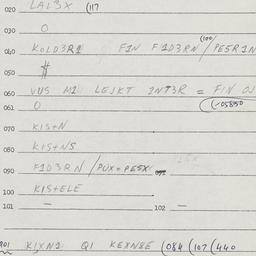 020 LAL3X (117
030 O
040 KOLD3R1 F1N F1D3RN (100)/PE5R1N
050 #
060 VUS M1 LEJKT 1NT3R = F1N OJ
061 O (-05850
070 KIS+N
080 KIS+NS
090 F1D3RN /PUX= PE5X
100 KIS+ELE
101 — 102 —
901 K1XN1 Q1 KEXN8E (084 (107 (440